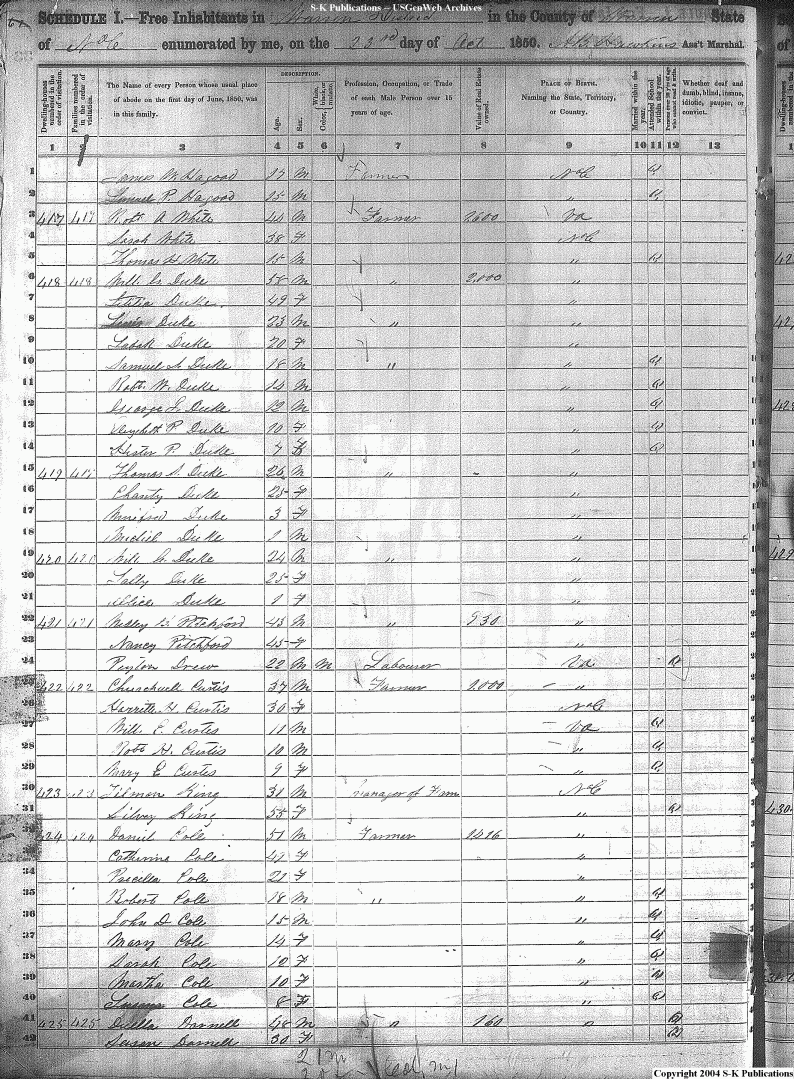 S-K Publications – USGenWeb Archives
SCHEDULE I.—Free Inhabitants in Warren District in the County of Warren State
of NoC enumerated by me, on the 23rd day of Oct 1850. Hawkins Ass't Marshal.
Dwelling-houses numbered in the order of visitation. Families numbered in the order of visitation. The Name of every Person whose usual place of abode on the first day of June, 1850, was in this family. DESCRIPTION. Age. Sex. White, Color, black, or mulatto. Profession, Occupation, or Trade of each Male Person over 15 years of age. Value of Real Estate owned. PLACE OF BIRTH. Naming the State, Territory, or Country. Married within the year. Attended School within the year. Persons over 20 y'rs of age who cannot read & write. Whether deaf and dumb, blind, insane, idiotic, pauper, or convict.
1 2 3 4 5 6 7 8 9 10 11 12 13
1 James W. Hagood 17 M Farmer NoC 1
2 Samuel P. Hagood 15 M " 1
3 417 417 Robt A White 44 M Farmer 2600 Va
4 Sarah White 38 F NoC
5 Thomas H White 15 M " 1
6 418 418 Will G. Duke 58 M " 2,000 "
7 Letitia Duke 49 F "
8 Lewis Duke 23 M " "
9 Sarah Duke 20 F "
10 Samuel Duke 18 M " " 1
11 Robt W. Duke 14 M " 1
12 George Duke 12 M " 1
13 Elizabeth P. Duke 10 F " 1
14 Hester P. Duke 7 F " 1
15 419 419 Thomas Duke 26 M " - "
16 Charity Duke 25 F "
17 Winifred Duke 3 F "
18 Duke 1 M "
19 420 420 Will G. Duke 24 M " "
20 Sally Duke 25 F "
21 Alice Duke 1 F "
22 421 421 Pitchford 43 M " 930 "
23 Nancy Pitchford 45 F "
24 Peyton Drew 22 M M Labourer Va 1
25 422 422 Churchwell Curtis 37 M Farmer 2.000 "
26 Harriett H. Curtis 30 F NoC
27 Will. E. Curtis 11 M Va 1
28 Robt H. Curtis 10 M " 1
29 Mary E Curtis 9 F " 1
30 423 423 Tilman King 31 M Manager of Farm NoC
31 Silvey King 55 F " 1
32 424 424 Daniel Cole 51 M Farmer 1416 "
33 Catherine Cole 47 F "
34 Priscilla Cole 21 F "
35 Robert Cole 18 M " " 1
36 John D Cole 15 M " 1
37 Mary Cole 14 F " 1
38 Sarah Cole 10 F " 1
39 Martha Cole 10 F " 1
40 Susana Cole 8 F " 1
41 425 425 Darnell 48 M " 160 "
42 Susan Darnell 30 F
Copyright 2004 S-K Publications